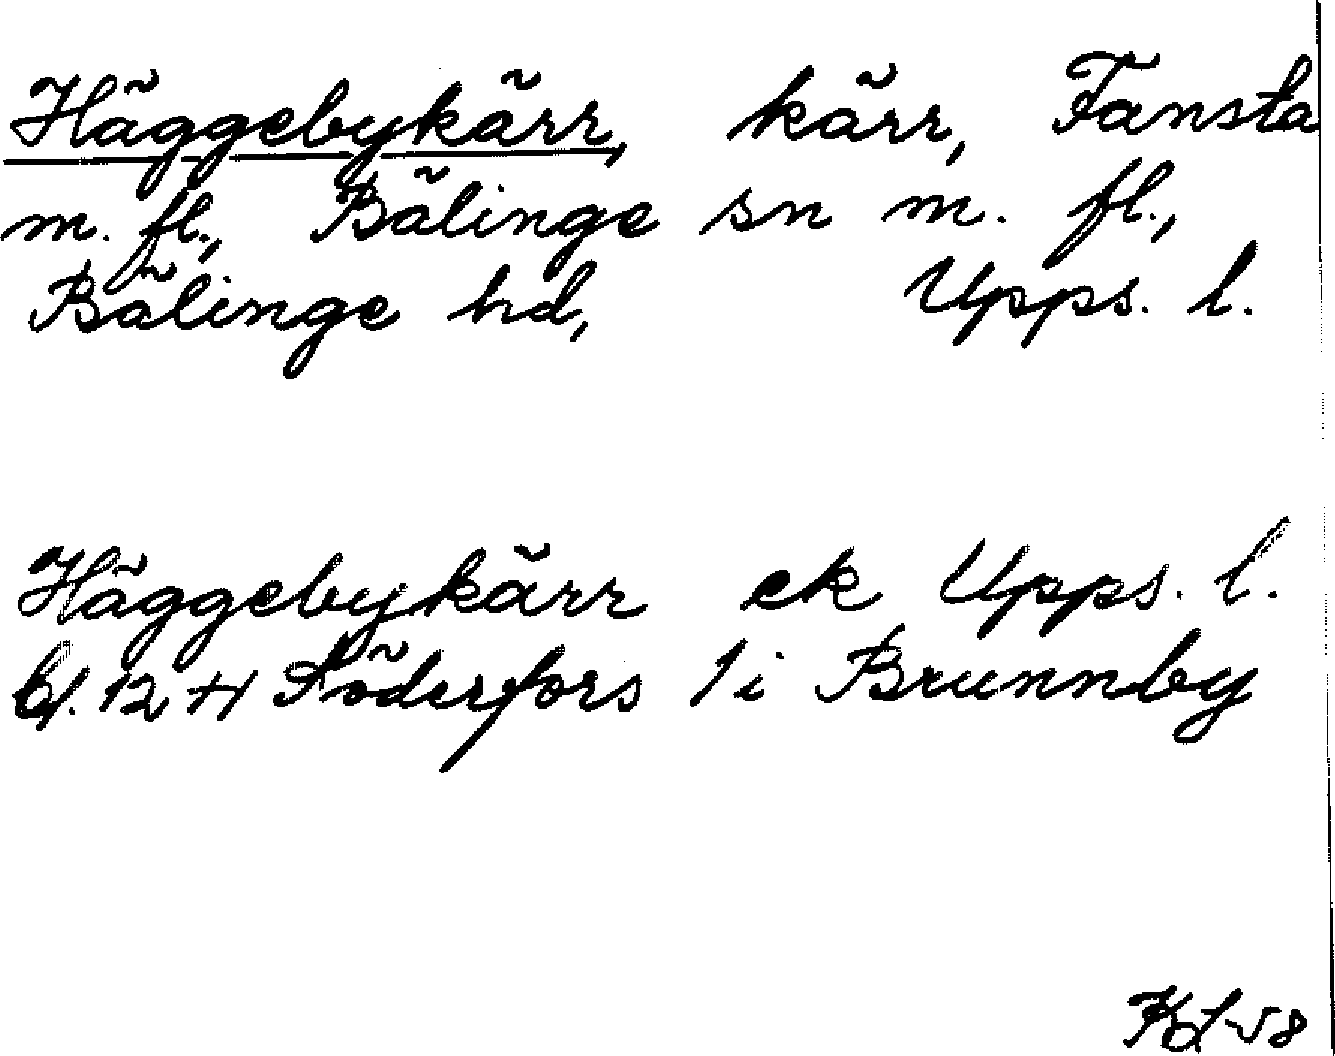 Häggebykärr, kärr, Fansta
m. fl., Bälinge sn m. fl.,
Bälinge hd, Upps. l.
Häggebykärr ek Upps. l.
bl. 12 H Söderfors 1 i Brunnby